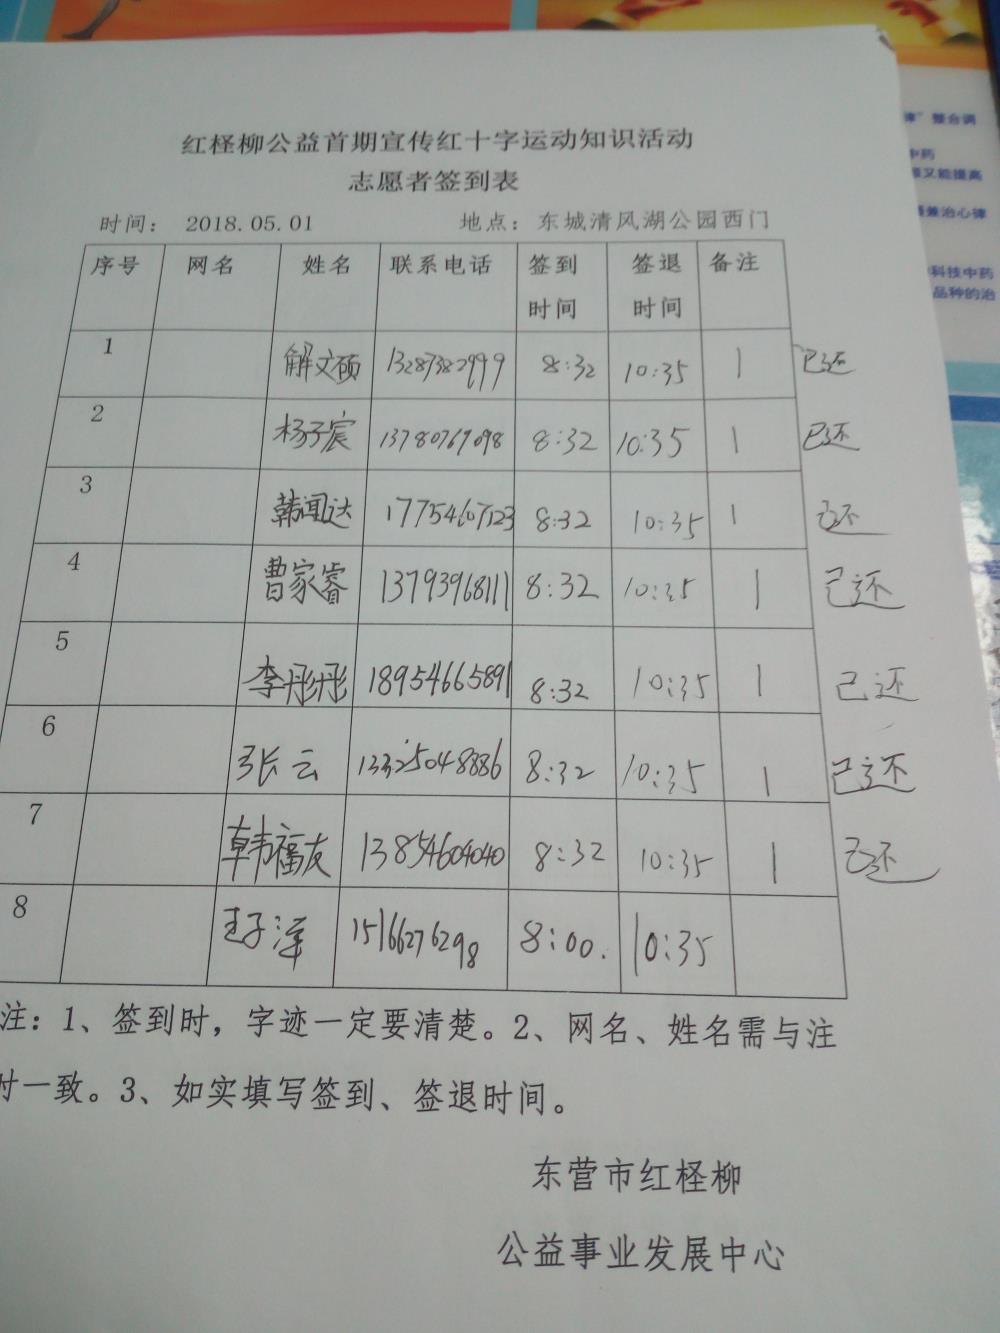 红柽柳公益首期宣传红十字运动知识活动
志愿者签到表
时间： 2018.05.01 地点：东城清风湖公园西门
序号 网名 姓名 联系电话 签到时间 签退时间 备注
1 解文硕 13287382999 8:32 10:35 1 已还
2 杨子宸 13780769098 8:32 10:35 1 已还
3 韩闻达 17754607123 8:32 10:35 1 已还
4 曹家睿 13793968111 8:32 10:35 1 已还
5 李彤彤 18954665891 8:32 10:35 1 已还
6 张云 13325048886 8:32 10:35 1 已还
7 韩福友 13854604040 8:32 10:35 1 已还
8 王子洋 15166276298 8:00. 10:35
注：1、签到时，字迹一定要清楚。2、网名、姓名需与注
时一致。3、如实填写签到、签退时间。
东营市红柽柳
公益事业发展中心
整合调
中药
又能提高
兼治心律
科技中药
品种的治